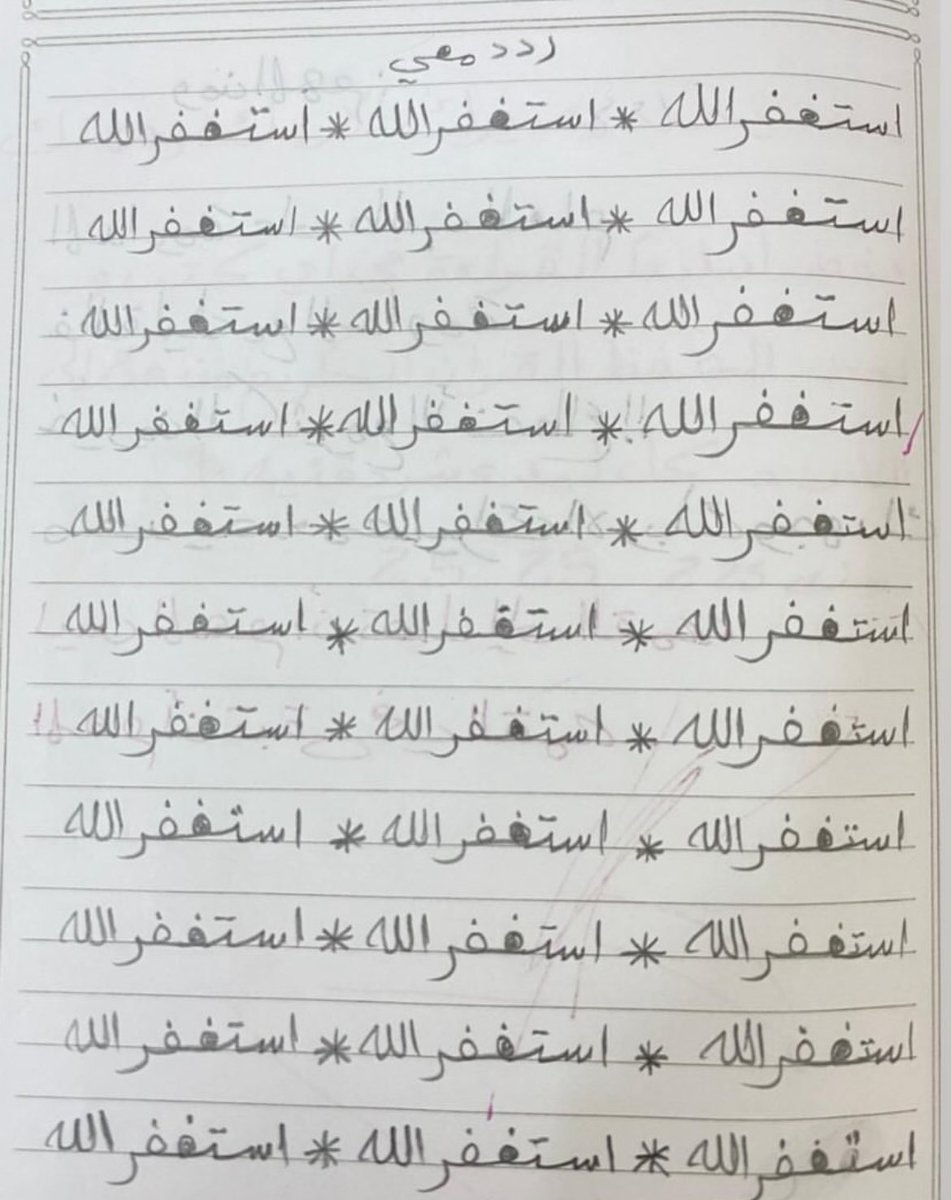 ردد معي
استغفر الله * استغفر الله * استغفر الله
استغفر الله * استغفر الله * استغفر الله
استغفر الله * استغفر الله * استغفر الله
استغفر الله * استغفر الله * استغفر الله
استغفر الله * استغفر الله * استغفر الله
استغفر الله * استغفر الله * استغفر الله
استغفر الله * استغفر الله * استغفر الله
استغفر الله * استغفر الله * استغفر الله
استغفر الله * استغفر الله * استغفر الله
استغفر الله * استغفر الله * استغفر الله
استغفر الله * استغفر الله * استغفر الله